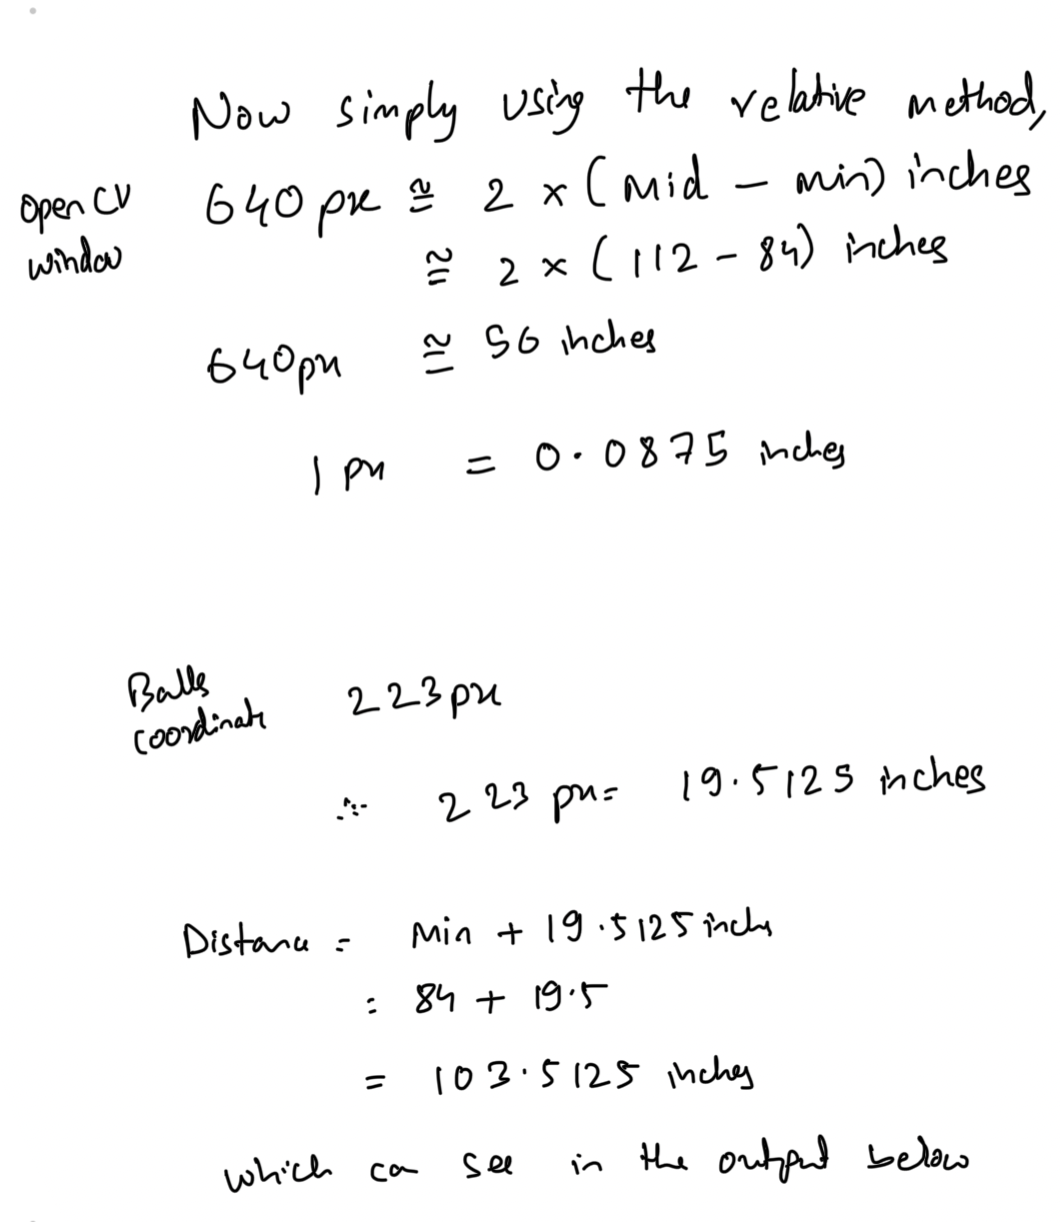 Now simply using the relative method,
open CV window
640 px ≅ 2 x (mid - min) inches
≅ 2 x (112 - 84) inches
640px ≅ 56 inches
1 px = 0.0875 inches
Balls coordinate
223px
∴ 223 px= 19.5125 inches
Distance = Min + 19.5125 inches
= 84 + 19.5
= 103.5125 inches
which can see in the output below